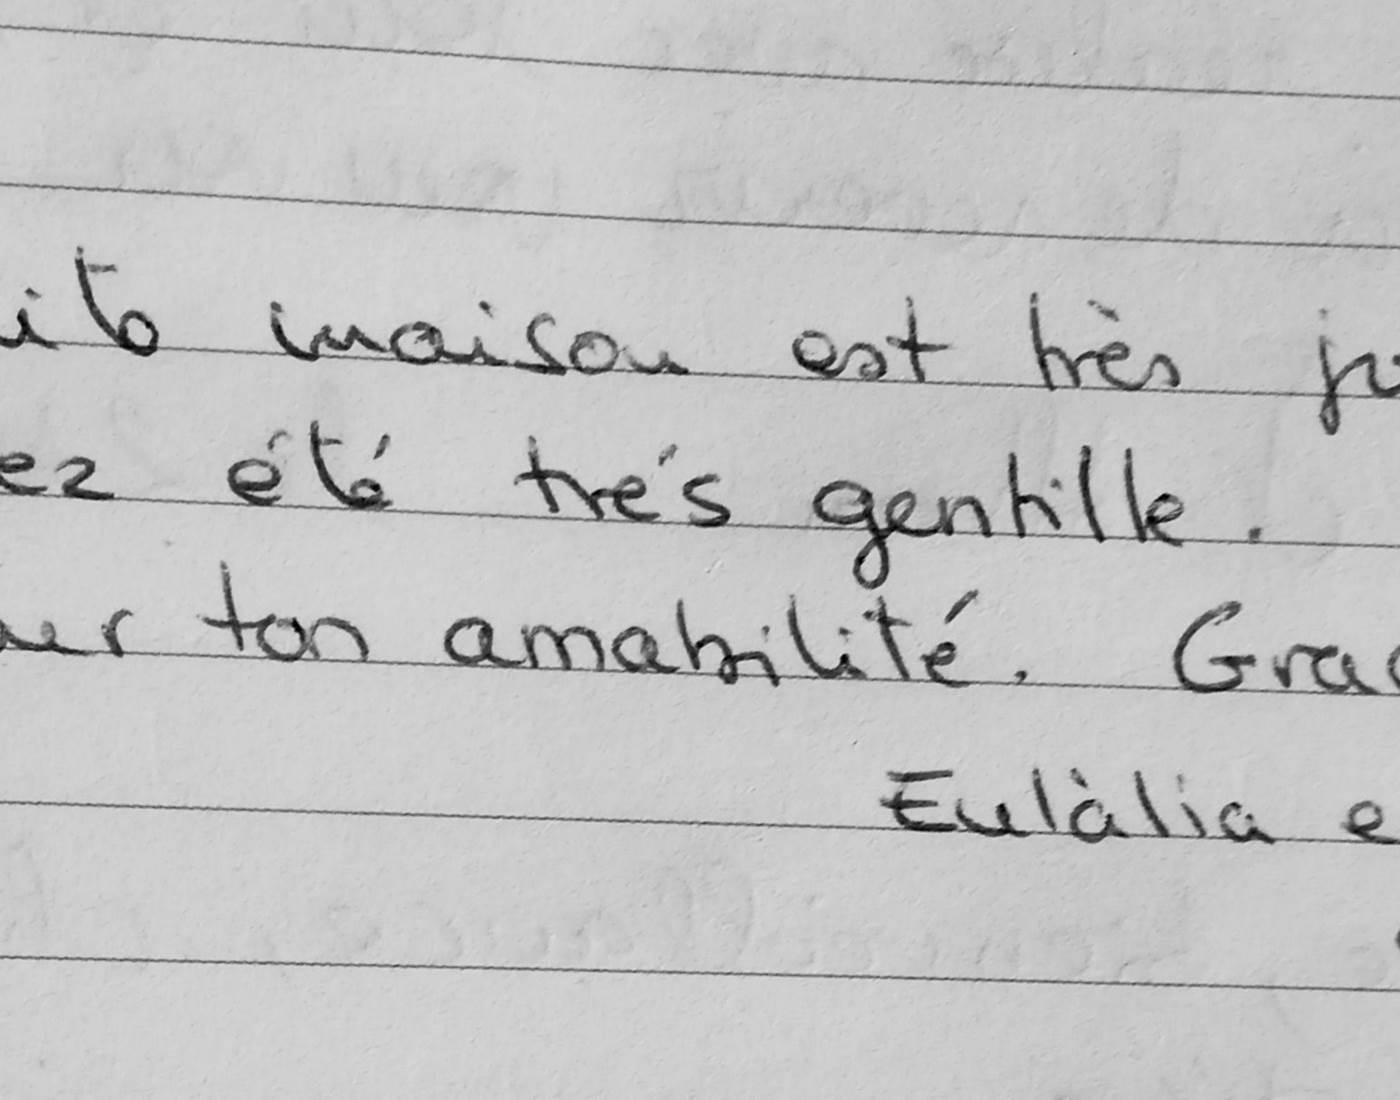 maison est très
ez été trés gentille.
ton amabilité. Grac
Eulàlia e